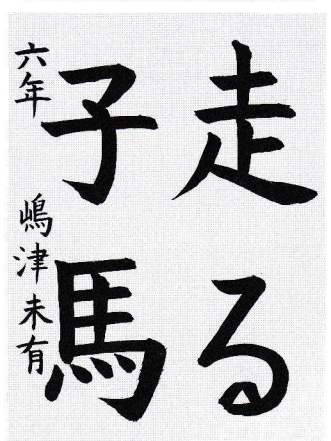 走る
子馬
六年 嶋津未有